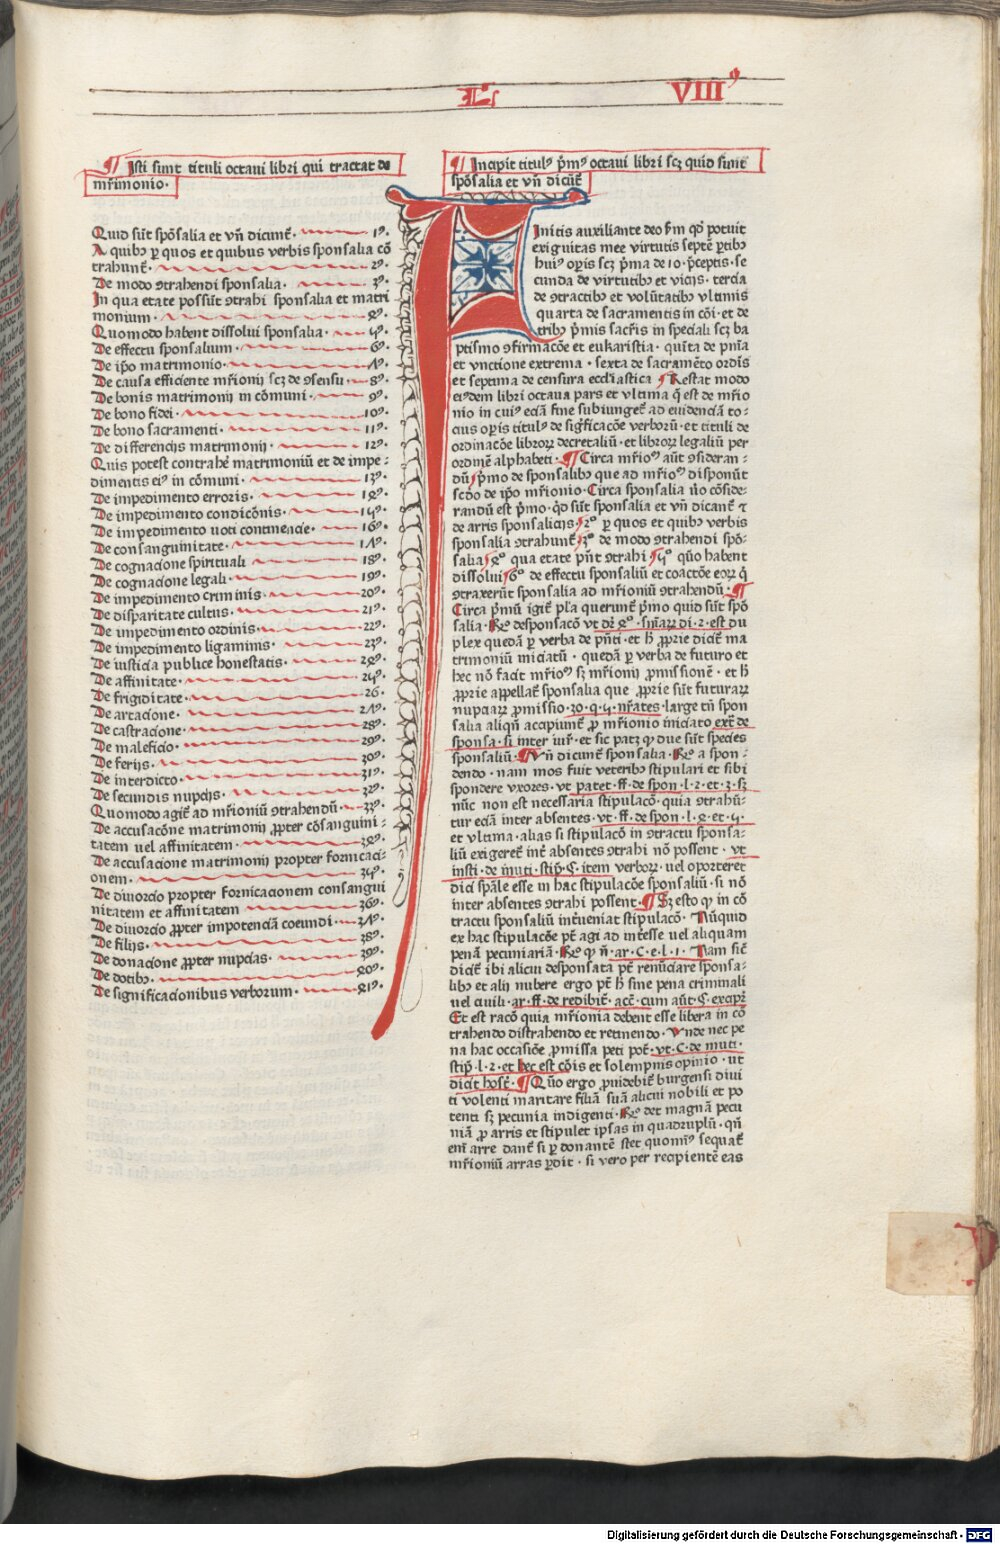 L VIIIꝰ
¶ Isti sunt tituli octaui libri qui tractat de
mr̃imonio·
Quid sũt spõsalia et vñ dicunt̃· 1ꝰ.
A quibꝫ ꝑ quos et quibus verbis sponsalia cõ
trahunt̃· 2ꝰ.
De modo ꝯtrahendi sponsalia· 3ꝰ.
In qua etate possũt ꝯtrahi sponsalia et matri
monium· 4ꝰ.
Quomodo habent dissolui sponsalia· 5ꝰ.
De effectu sponsalium· 6ꝰ.
De ip̃o matrimonio· 7ꝰ.
De causa efficiente mr̃ionij scꝫ de ꝯsensu· 8ꝰ.
De bonis matrimonij in cõmuni· 9ꝰ.
De bono fidei· 10ꝰ.
De bono sacramenti· 11ꝰ.
De differencijs matrimonij· 12ꝰ.
Quis potest contrahẽ matrimoniũ et de impe-
dimentis eiꝰ in cõmuni· 13ꝰ.
De impedimento erroris· 14ꝰ.
De impedimento condicõnis· 15ꝰ.
De impedimento uoti continencie· 16ꝰ.
De consanguinitate· 17ꝰ.
De cognacione spirituali 18ꝰ.
De cognacione legali· 19ꝰ.
De impedimento criminis· 20ꝰ.
De disparitate cultus· 21ꝰ.
De impedimento ordinis· 22ꝰ.
De impedimento ligaminis· 23ꝰ.
De iusticia publice honestatis· 24ꝰ.
De affinitate· 25ꝰ.
De frigiditate· 26.
De artacione· 27ꝰ.
De castracione· 28ꝰ.
De maleficio· 29ꝰ.
De ferijs· 30ꝰ.
De interdicto· 31ꝰ.
De secundis nupcijs· 32ꝰ.
Quomodo agit̃ ad mr̃ioniũ ꝯtrahendũ· 33ꝰ.
De accusacõne matrimonij ꝓpter cõsanguini-
tatem uel affinitatem· 34ꝰ.
De accusacione matrimonij propter fornicaci-
onem· 35ꝰ.
De diuorcio propter fornicacionem consangui
nitatem et affinitatem 36ꝰ.
De diuorcio ꝓpter impotenciã coeundi· 37ꝰ.
De filijs· 38ꝰ.
De donacione ꝓpter nupcias· 39ꝰ.
De dotibꝫ· 40ꝰ.
De significacionibus verborum· 41ꝰ.
¶ Incipit titulꝰ p̃mꝰ octaui libri scꝫ quid sunt
spõsalia et vñ dicũt̃
Finitis auxiliante deo ẜm qđ potuit
exiguitas mee virtutis septẽ ꝑtibꝫ
huiꝰ oꝑis scꝫ p̃ma de 10 p̃ceptis· se
cunda de virtutibꝫ et vicijs· tercia
de ꝯtractibꝫ et volũtatibꝫ vltimis
quarta de sacramentis in cõi· et de
tribꝫ p̃mis sacr̃is in speciali scꝫ ba
ptismo ꝯfirmacõe et eukaristia· quĩta de pnĩa
et vnctione extrema· sexta de sacramẽto ordĩs
et septima de censura eccl̃iastica ¶ Restat modo
eiꝰdem libri octaua pars et vltima q̃ est de mr̃io
nio in cuiꝰ eciã fine subiunget̃ ad euidenciã to-
cius oꝑis titulꝰ de sigficacõe verborũ· et tituli de
ordinacõe libroꝝ decretaliũ· et libroꝝ legaliũ per
ordinẽ alphabeti· ¶ Circa mr̃ioꝫ aũt ꝯsideran-
dũ p̃mo de sponsalibꝫ que ad mr̃ioꝫ disponũt
scđo de ip̃o mr̃ionio· Circa sponsalia ũo cõside-
randũ est p̃mo· qđ sũt sponsalia et vñ dicant̃ ⁊
de arris sponsalicijs· 2ꝰ ꝑ quos et quibꝫ verbis
sponsalia ꝯtrahunt̃· 3ꝰ de modo ꝯtrahendi spõ-
salia· 4ꝰ qua etate pñt ꝯtrahi· 5ꝰ quõ habent
dissolui· 6ꝰ de effectu sponsaliũ et coactõe eoꝝ q̃
ꝯtraxerũt sponsalia ad mr̃ioniũ ꝯtrahendũ· ¶
Circa p̃mũ igit̃ pl̃a querunt̃ p̃mo quid sũt spõ
salia· R̃o desponsacõ vt dr̃ 4ꝰ· sn̄iaꝝ di· 2· est du
plex quedã ꝑ verba de pñti· et h̃ ꝓprie dicit̃ ma
trimoniũ iniciatũ· quedã ꝑ verba de futuro et
hec nõ facit mr̃ioꝫ sꝫ mr̃ionij ꝓmissionẽ· et h̃
ꝓprie appellat̃ sponsalia que ꝓprie sũt futuraꝝ
nupciaꝝ ꝓmissio· 30· q· 5· nr̃ates· large tñ spon
salia aliqñ accipiunt̃ ꝓ mr̃ionio iniciato ext̃ de
sponsa· si inter uir̃· et sic patꝫ ꝙ due sũt species
sponsaliũ· ¶ Vñ dicunt̃ sponsalia· R̃o a spon-
dendo· nam mos fuit veteribꝫ stipulari et sibi
spondere vxores· vt patet· ff· de spon· l· 2· et· 3· sꝫ
nũc non est necessaria stipulacõ· quia ꝯtrahũ-
tur eciã inter absentes· vt· ff· de spon· l· 4· et· 5·
et vltima· alias si stipulacõ in ꝯtractu sponsa-
liũ exigeret̃ int̃ absentes ꝯtrahi nõ possent· vt
insti· de inuti· stip̃· C· item verboꝝ· uel oporteret
dici sp̃ale esse in hac stipulacõe sponsaliũ· si nõ
inter absentes ꝯtrahi possent· ¶ Sꝫ esto ꝙ in cõ
tractu sponsaliũ intueniat stipulacõ· Nũquid
ex hac stipulacõe pt̃ agi ad int̃esse uel aliquam
penã pecuniariã· R̃o ꝙ ñ· ar· C· e· l· 1· Nam sic̃
dicit̃ ibi alicui desponsata pt̃ renũciare sponsa-
libꝫ et alij nubere ergo pt̃ h̃ sine pena criminali
uel ciuili· ar· ff· de redibit̃· act̃· cum aũt· C· excip̃
Et est racõ quia mr̃ionia debent esse libera in cõ
trahendo distrahendo et retinendo· Vnde nec pe
na hac occasiõe ꝓmissa peti pot̃· vt· C· de inuti·
stip̃· l· 2· et hec est cõis et solempnis opinio· ut
dicit host̃· ¶ Quõ ergo ꝓuidebit̃ burgensi diui
ti volenti maritare filiã suã alicui nobili et po
tenti sꝫ pecunia indigenti· R̃o det magnã pecu
niã ꝓ arris et stipulet̃ ipsas in quadruplũ· qñ
eñ arre dant̃ si ꝑ donantẽ stet quominꝰ sequat̃
mr̃ioniũ arras ꝑdit· si vero per recipientẽ eas
Digitalisierung gefördert durch die Deutsche Forschungsgemeinschaft - DFG